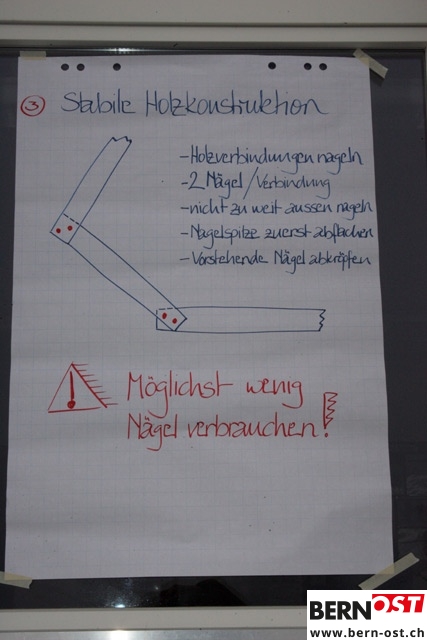 3 Stabile Holzkonstruktion
- Holzverbindungen nageln
- 2 Nägel / Verbindung
- nicht zu weit aussen nageln
- Nagelspitze zuerst abflachen
- Vorstehende Nägel abkröpfen
Möglichst wenig
Nägel verbrauchen!
BERNOST
www.bern-ost.ch